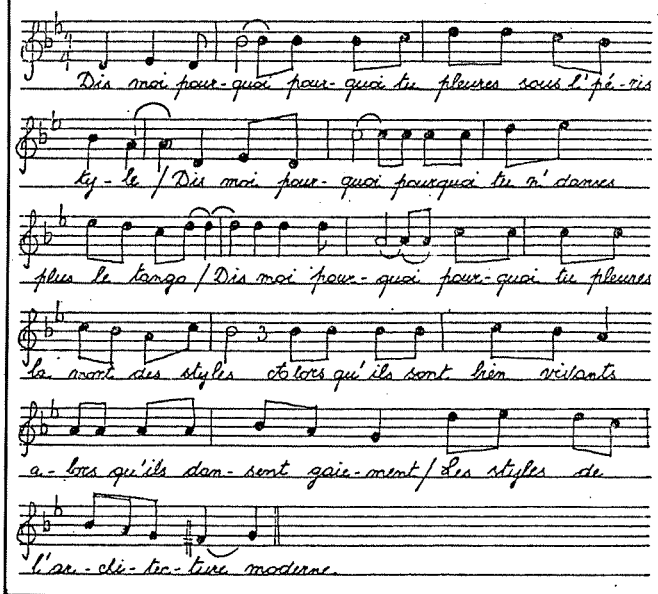 Dis moi pour-quoi pour-quoi tu pleures sous l'pé-ris
ty-le / Dis moi pour-quoi pourquoi tu n'danses
plus le tango / Dis moi pour-quoi pour-quoi tu pleures
la mort des styles Alors qu'ils sont bien vivants
a-lors qu'ils dan-sent gaie-ment / Les styles de
l'ar-chi-tec-ture moderne.